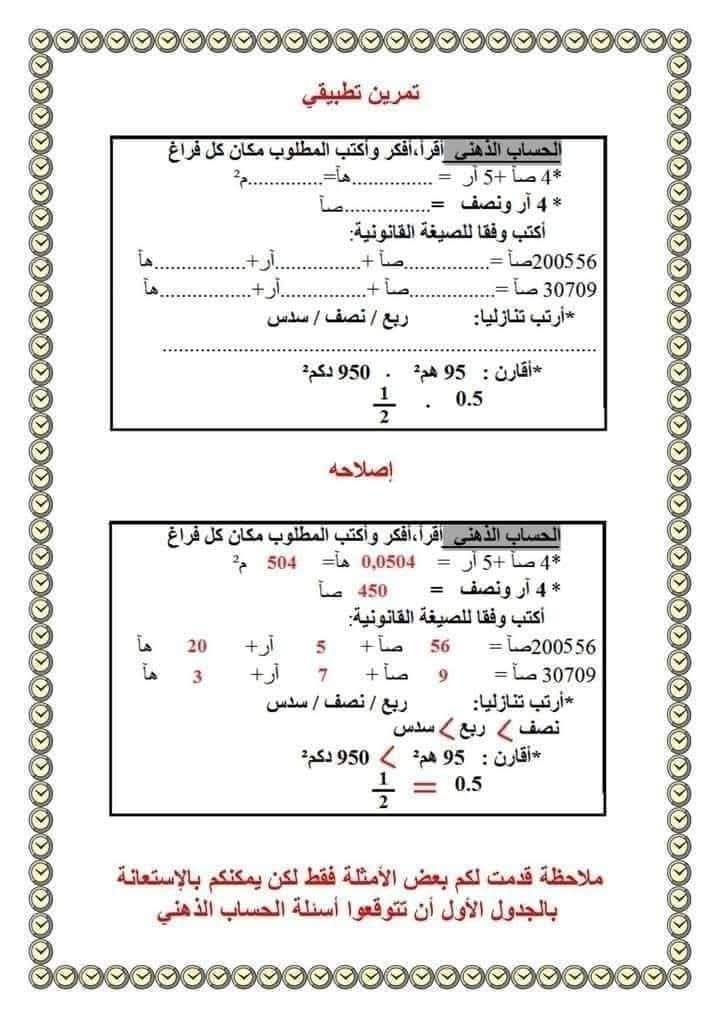 تمرين تطبيقي
الحساب الذهني أقرأ،أفكر وأكتب المطلوب مكان كل فراغ
*4 صآ +5 آر = ...............هآ=..............م²
* 4 آر ونصف =................صآ
أكتب وفقا للصيغة القانونية:
200556صآ =................صآ +................آر+.................هآ
30709 صآ =................صآ +................آر+.................هآ
*أرتب تنازليا: ربع / نصف / سدس
................................................................................
*أقارن : 95 هم² . 950 دكم²
0.5 . 1/2
إصلاحه
الحساب الذهني أقرأ،أفكر وأكتب المطلوب مكان كل فراغ
*4 صآ +5 آر = 0,0504 هآ= 504 م²
* 4 آر ونصف = 450 صآ
أكتب وفقا للصيغة القانونية:
200556صآ = 56 صآ + 5 آر+ 20 هآ
30709 صآ = 9 صآ + 7 آر+ 3 هآ
*أرتب تنازليا: ربع / نصف / سدس
نصف > ربع > سدس
*أقارن : 95 هم² > 950 دكم²
0.5 = 1/2
ملاحظة قدمت لكم بعض الأمثلة فقط لكن يمكنكم بالإستعانة
بالجدول الأول أن تتوقعوا أسئلة الحساب الذهني